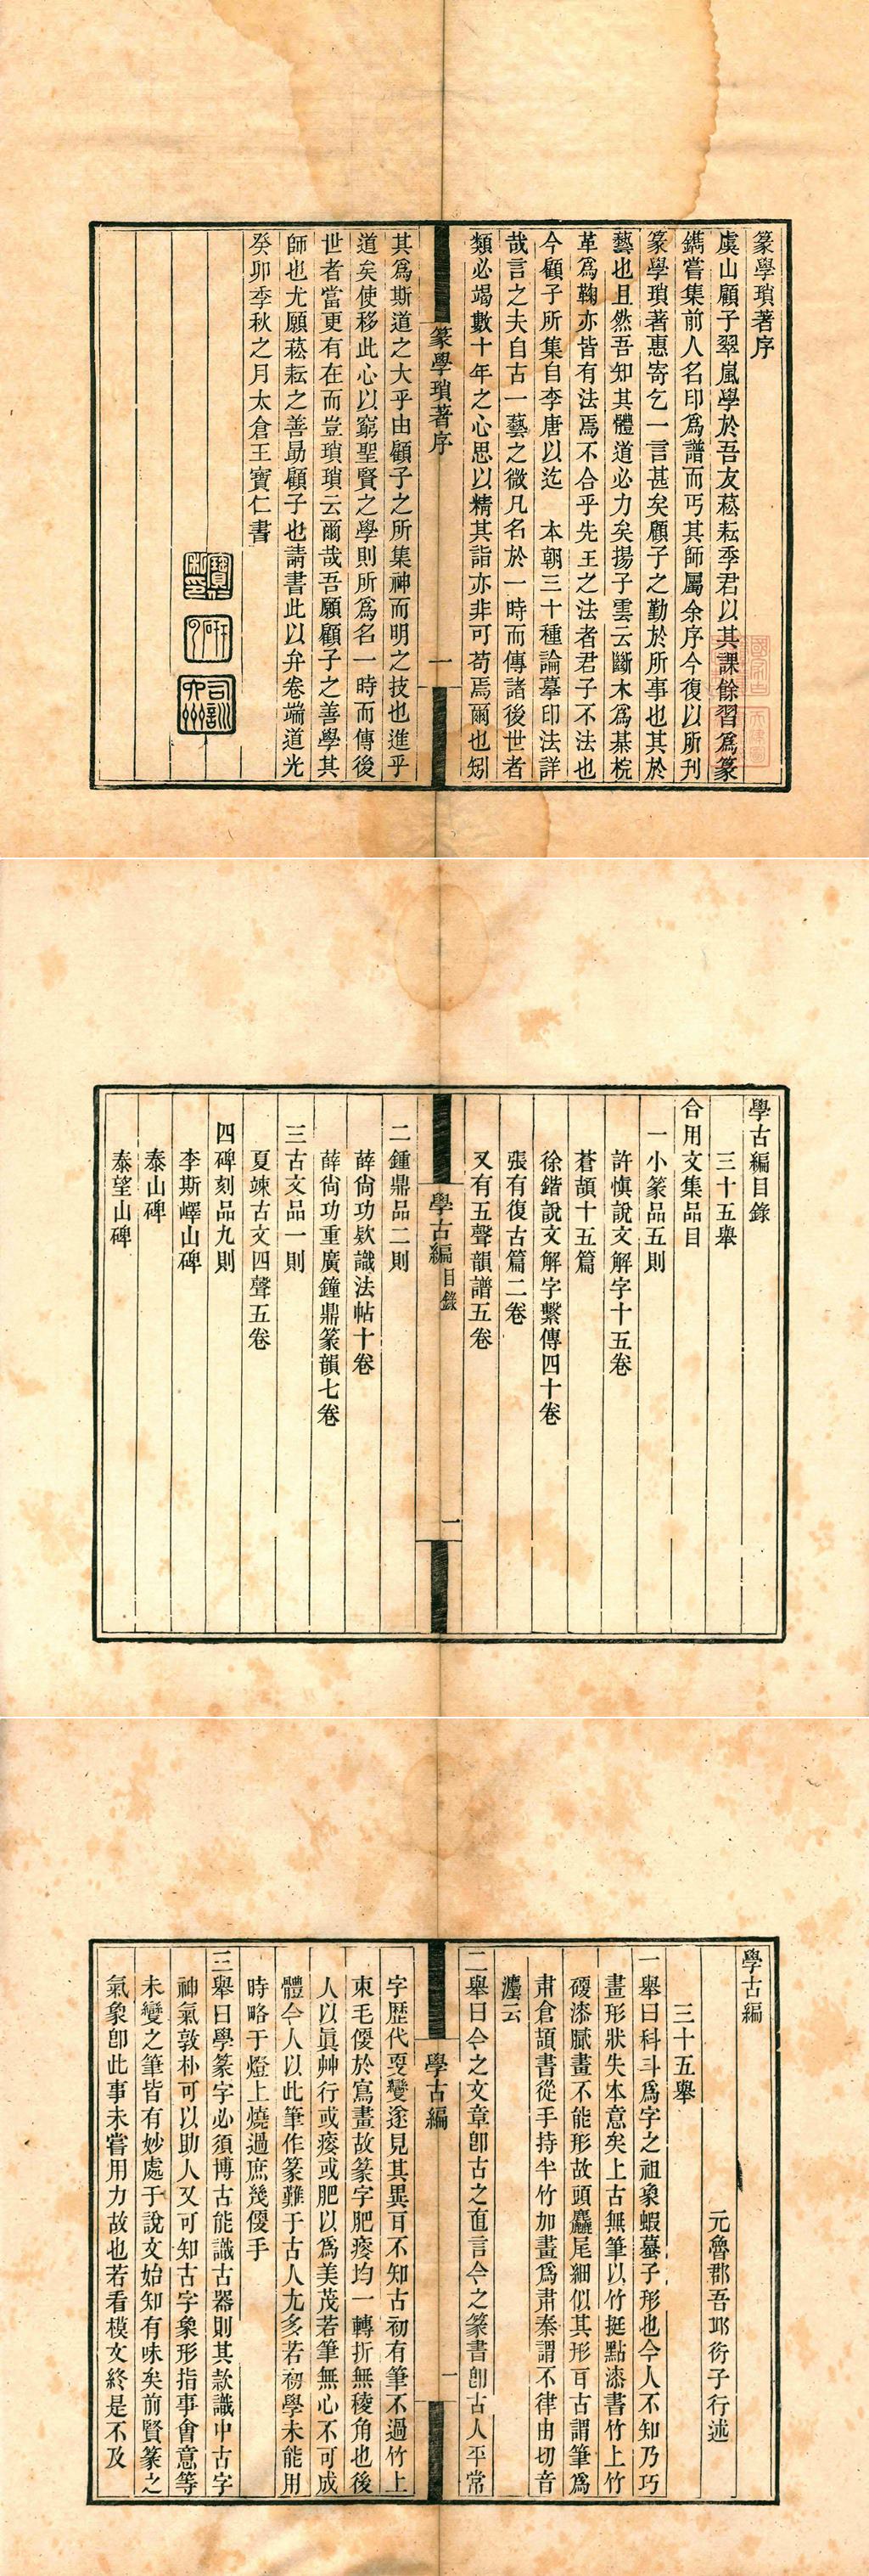 篆學瑣著序
虞山顧子翠嵐學於吾友菘耘季君以其課餘習爲篆
鐫嘗集前人名印爲譜而丐其師屬余序今復以所刋
篆學瑣著惠寄乞一言甚矣顧子之勤於所事也其於
藝也且然吾知其體道必力矣揚子雲云斷木爲棊梡
革爲鞠亦皆有法焉不合乎先王之法者君子不法也
今顧子所集自李唐以迄　本朝三十種論摹印法詳
哉言之夫自古一藝之微凡名於一時而傳諸後世者
類必竭數十年之心思以精其詣亦非可苟焉爾也矧
篆學瑣著序
一
其爲斯道之大乎由顧子之所集神而明之技也進乎
道矣使移此心以窮聖賢之學則所爲名一時而傳後
世者當更有在而豈瑣瑣云爾哉吾願顧子之善學其
師也尤願菘耘之善勗顧子也請書此以弁卷端道光
癸卯季秋之月太倉王寶仁書
學古編目錄
三十五舉
合用文集品目
一小篆品五則
許愼說文解字十五卷
蒼頡十五篇
徐鍇說文解字繫傳四十卷
張有復古篇二卷
又有五聲韻譜五卷
學古編目錄
一
二鍾鼎品二則
薛尙功欵識法帖十卷
薛尙功重廣鐘鼎篆韻七卷
三古文品一則
夏竦古文四聲五卷
四碑刻品九則
李斯嶧山碑
泰山碑
泰望山碑
學古編
元魯郡吾邱衍子行述
三十五舉
一舉曰科斗爲字之祖象蝦蟇子形也今人不知乃巧
畫形狀失本意矣上古無筆以竹挺點漆書竹上竹
硬漆膩畫不能形故頭麤尾細似其形耳古謂筆爲
肅倉頡書從手持半竹加畫爲肅秦謂不律由切音
灋云
二舉曰今之文章卽古之直言今之篆書卽古人平常
學古編
一
字歷代更變遂見其異耳不知古初有筆不過竹上
束毛便於寫畫故篆字肥瘦均一轉折無稜角也後
人以眞艸行或瘦或肥以爲美茂若筆無心不可成
體今人以此筆作篆難于古人尤多若初學未能用
時略于燈上燒過庶幾便手
三舉曰學篆字必須博古能識古器則其款識中古字
神氣敦朴可以助人又可知古字象形指事會意等
未變之筆皆有妙處于說文始知有味矣前賢篆之
氣象卽此事未嘗用力故也若看模文終是不及